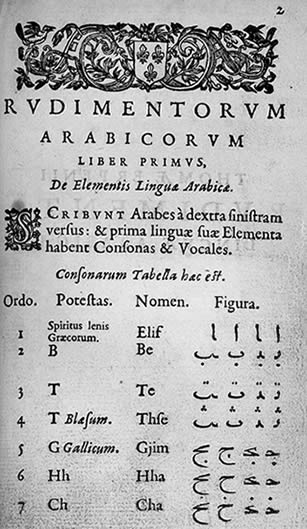 2
RVDIMENTORVM
ARABICORVM
LIBER PRIMVS,
De Elementis Linguæ Arabicæ.
SCRIBVNT Arabes à dextra sinistram
versus: & prima linguæ suæ Elementa
habent Consonas & Vocales.
Consonarum Tabella hæc est.
Ordo. Potestas. Nomen. Figura.
1 Spiritus lenis Græcorum. Elif ا ا ا ا
2 B Be
3 T Te
4 T Blæsum. Thse
5 G Gallicum. Gjim
6 Hh Hha
7 Ch Cha